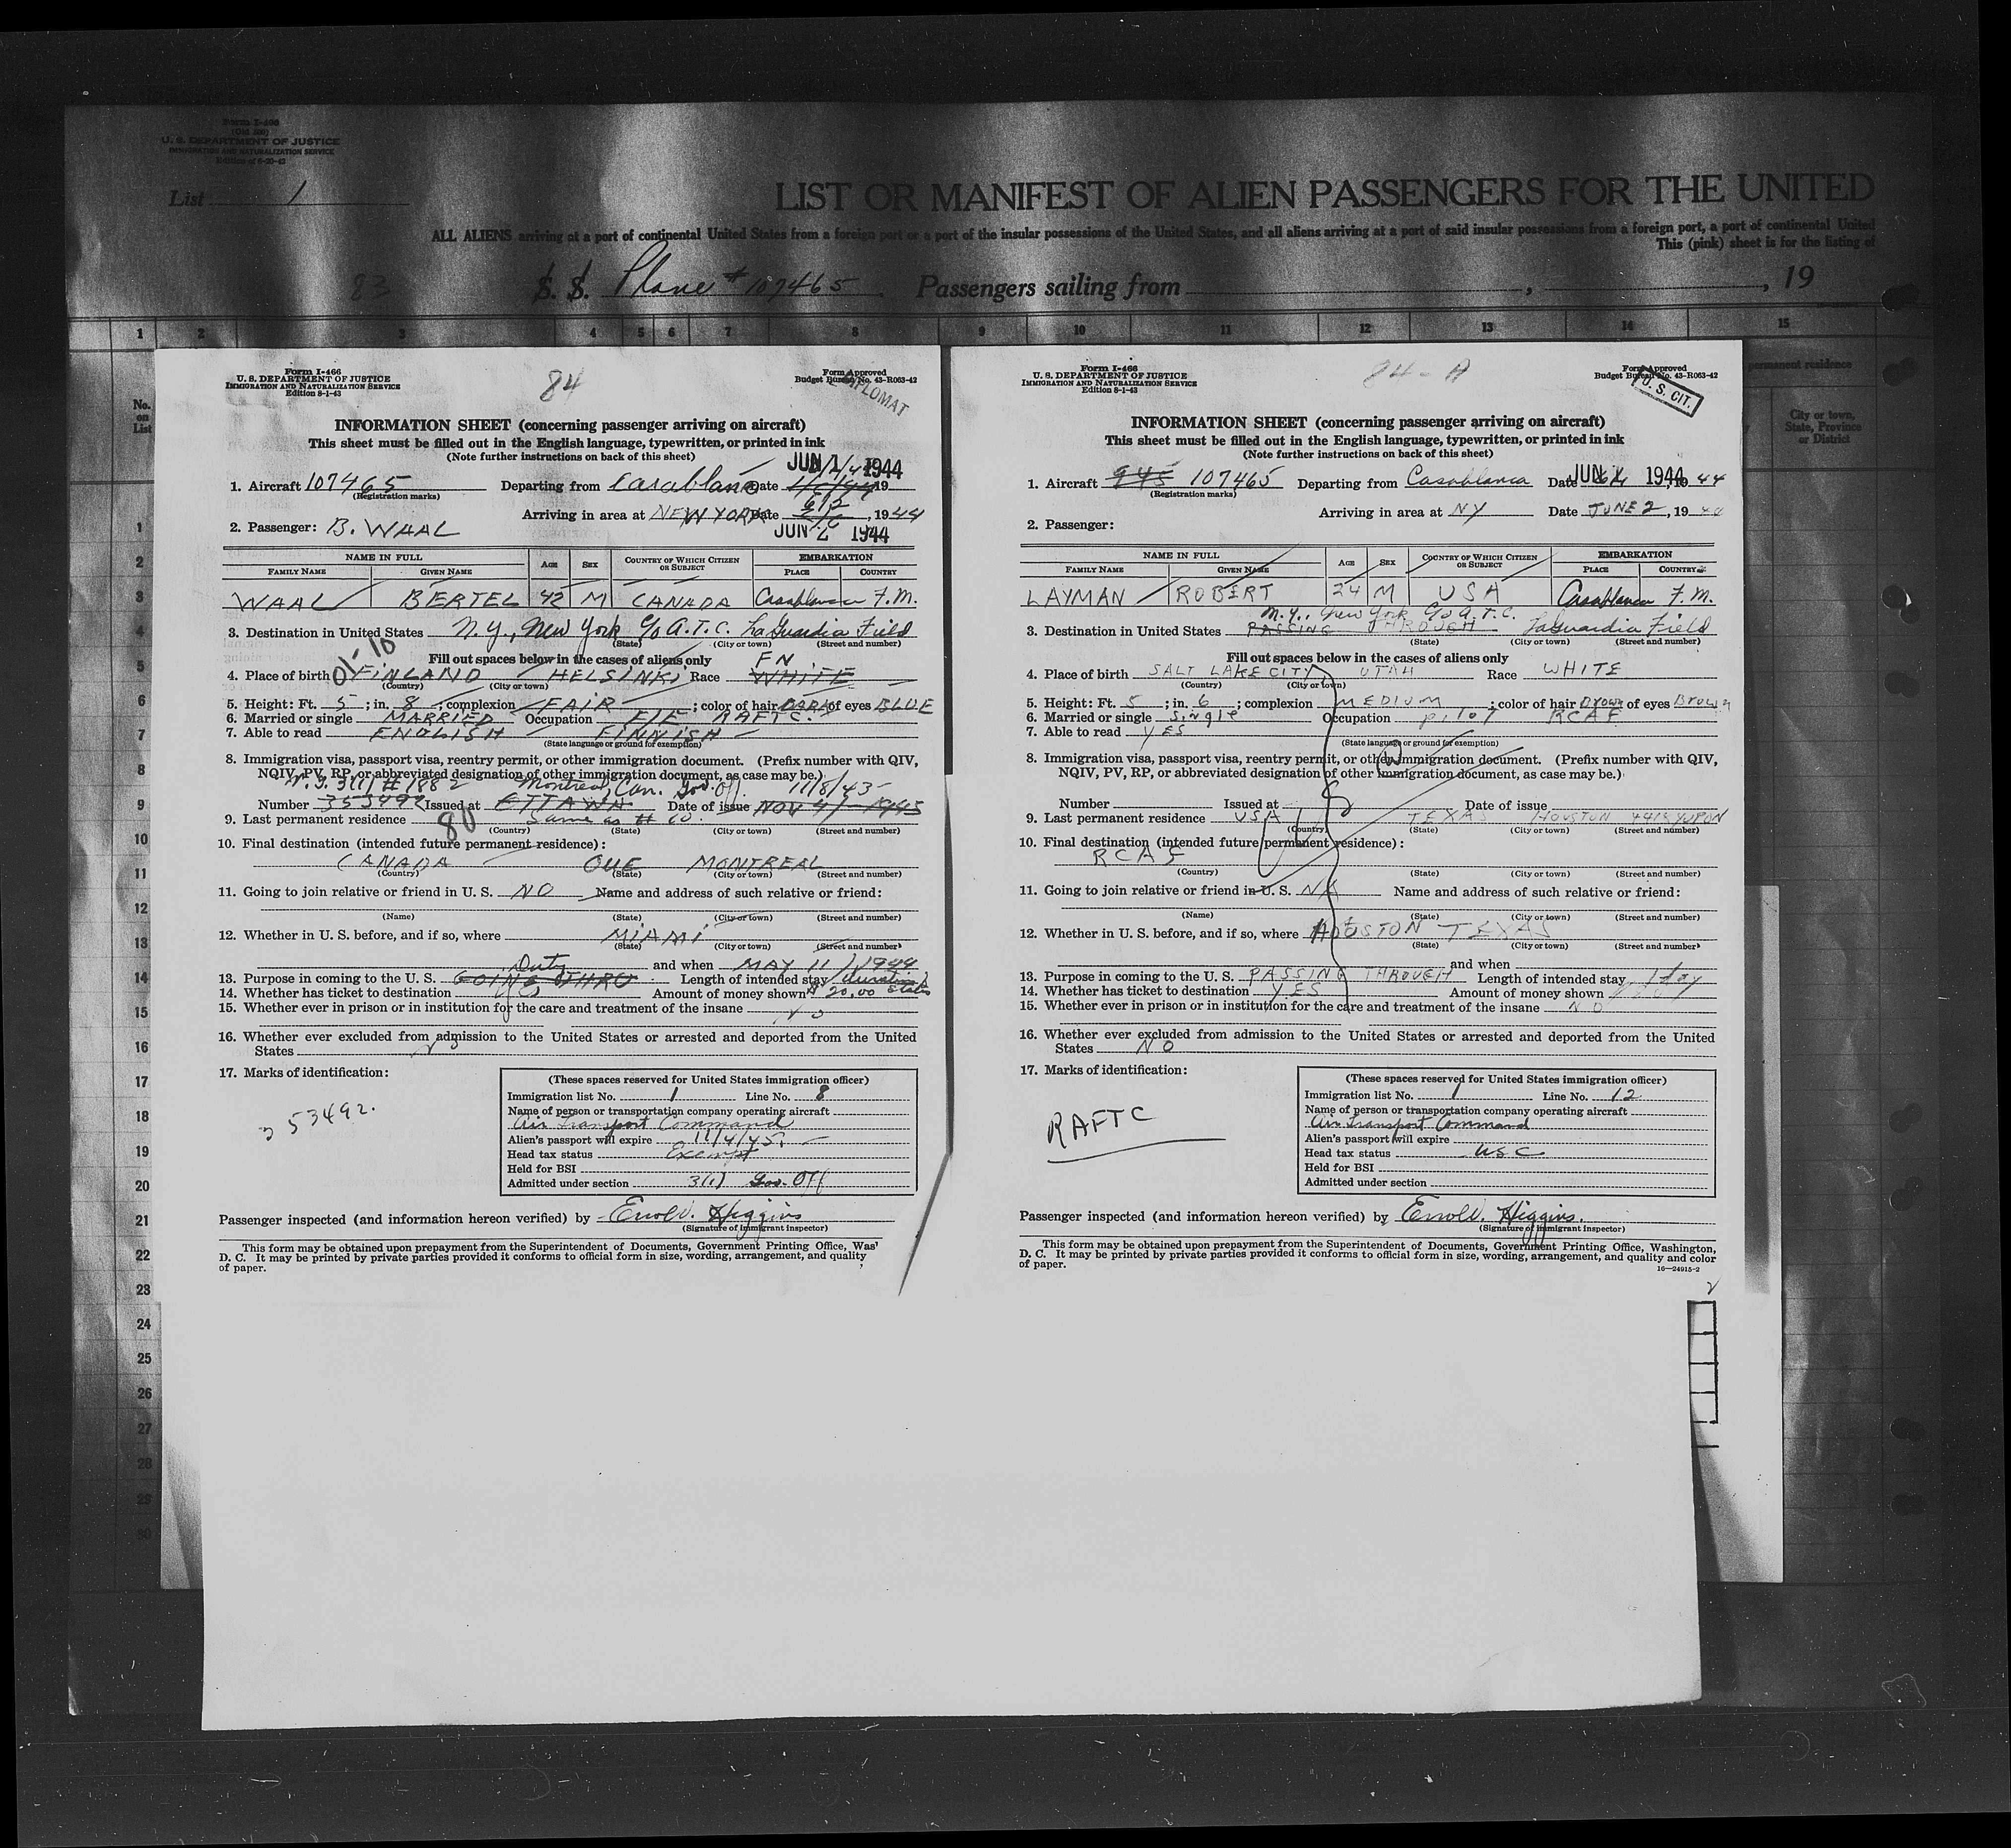 Form I-466
(Old 500)
U. S. DEPARTMENT OF JUSTICE
IMMIGRATION AND NATURALIZATION SERVICE
List 1
LIST OR MANIFEST OF ALIEN PASSENGERS FOR THE UNITED
ALL ALIENS arriving at a port of continental United States from a foreign port or a port of the insular possessions of the United States, and all aliens arriving at a port of said insular possessions from a foreign port, a port of continental United
This (pink) sheet is for the listing of
83 S. S. Plane # 107465 Passengers sailing from , , 19
1 2 3 4 5 6 7 8 9 10 11 12 13 14 15
permanent residence
No. on List
City or town, State, Province or District
Form I-466
U. S. DEPARTMENT OF JUSTICE
IMMIGRATION AND NATURALIZATION SERVICE
Edition 8-1-43
84
Form Approved
Budget Bureau No. 43-R063-42
DIPLOMAT
INFORMATION SHEET (concerning passenger arriving on aircraft)
This sheet must be filled out in the English language, typewritten, or printed in ink
(Note further instructions on back of this sheet)
JUN 1 1944
1. Aircraft 107465 Departing from Casablanca Date 19
(Registration marks)
Arriving in area at NEW YORK Date 6/2, 1944
2. Passenger: B. WAAL
JUN 2 1944
NAME IN FULL AGE SEX COUNTRY OF WHICH CITIZEN OR SUBJECT EMBARKATION
FAMILY NAME GIVEN NAME PLACE COUNTRY
WAAL BERTEL 42 M CANADA Casablanca F.M.
3. Destination in United States N.Y., New York c/o A.T.C. LaGuardia Field
(State) (City or town) (Street and number)
Fill out spaces below in the cases of aliens only
01-10 FN
4. Place of birth FINLAND HELSINKI Race WHITE
(Country) (City or town)
5. Height: Ft. 5; in. 8; complexion FAIR; color of hair DARK of eyes BLUE
6. Married or single MARRIED Occupation F/E RAFTC.
7. Able to read ENGLISH FINNISH
(State language or ground for exemption)
8. Immigration visa, passport visa, reentry permit, or other immigration document. (Prefix number with QIV,
NQIV, PV, RP, or abbreviated designation of other immigration document, as case may be.)
3(1) # 1882 Montreal, Can. Gov. Off. 11/8/43
Number 353492 Issued at OTTAWA Date of issue NOV 4/ 1943
9. Last permanent residence Same as # 10.
80
(Country) (State) (City or town) (Street and number)
10. Final destination (intended future permanent residence):
CANADA QUE MONTREAL
(Country) (State) (City or town) (Street and number)
11. Going to join relative or friend in U. S. NO Name and address of such relative or friend:
(Name) (State) (City or town) (Street and number)
12. Whether in U. S. before, and if so, where MIAMI
(State) (City or town) (Street and number)
and when MAY 11 / 1944
Duty
13. Purpose in coming to the U. S. GOING THRU Length of intended stay
14. Whether has ticket to destination Amount of money shown $20.00
15. Whether ever in prison or in institution for the care and treatment of the insane NO
16. Whether ever excluded from admission to the United States or arrested and deported from the United
States NO
17. Marks of identification:
353492.
(These spaces reserved for United States immigration officer)
Immigration list No. 1 Line No. 8
Name of person or transportation company operating aircraft
Air Transport Command
Alien's passport will expire 11/4/45.
Head tax status Exempt
Held for BSI
Admitted under section 3(1) Gov. Off
Passenger inspected (and information hereon verified) by Errold. Higgins
(Signature of immigrant inspector)
This form may be obtained upon prepayment from the Superintendent of Documents, Government Printing Office, Was'
D. C. It may be printed by private parties provided it conforms to official form in size, wording, arrangement, and quality
of paper.
Form I-466
U. S. DEPARTMENT OF JUSTICE
IMMIGRATION AND NATURALIZATION SERVICE
Edition 8-1-43
84-A
Form Approved
Budget Bureau No. 43-R063-42
U. S. CIT.
INFORMATION SHEET (concerning passenger arriving on aircraft)
This sheet must be filled out in the English language, typewritten, or printed in ink
(Note further instructions on back of this sheet)
1. Aircraft 945 107465 Departing from Casablanca Date JUN 1 1944 1944
(Registration marks)
Arriving in area at NY Date JUNE 2, 19
2. Passenger:
NAME IN FULL AGE SEX COUNTRY OF WHICH CITIZEN OR SUBJECT EMBARKATION
FAMILY NAME GIVEN NAME PLACE COUNTRY
LAYMAN ROBERT 24 M USA Casablanca F.M.
N.Y., New York c/o A.T.C.
3. Destination in United States PASSING THROUGH LaGuardia Field
(State) (City or town) (Street and number)
Fill out spaces below in the cases of aliens only
4. Place of birth SALT LAKE CITY, UTAH Race WHITE
(Country) (City or town)
5. Height: Ft. 5; in. 6; complexion MEDIUM; color of hair Brown of eyes Brown
6. Married or single Single Occupation pilot RCAF
7. Able to read YES
(State language or ground for exemption)
8. Immigration visa, passport visa, reentry permit, or other immigration document. (Prefix number with QIV,
NQIV, PV, RP, or abbreviated designation of other immigration document, as case may be.)
Number Issued at Date of issue
9. Last permanent residence USA TEXAS HOUSTON 4415 YUPON
(Country) (State) (City or town) (Street and number)
10. Final destination (intended future permanent residence):
RCAF
(Country) (State) (City or town) (Street and number)
11. Going to join relative or friend in U. S. Name and address of such relative or friend:
(Name) (State) (City or town) (Street and number)
12. Whether in U. S. before, and if so, where HOUSTON TEXAS
(State) (City or town) (Street and number)
and when
13. Purpose in coming to the U. S. PASSING THROUGH Length of intended stay 1 day
14. Whether has ticket to destination YES Amount of money shown
15. Whether ever in prison or in institution for the care and treatment of the insane NO
16. Whether ever excluded from admission to the United States or arrested and deported from the United
States NO
17. Marks of identification:
RAFTC
(These spaces reserved for United States immigration officer)
Immigration list No. 1 Line No. 12
Name of person or transportation company operating aircraft
Air Transport Command
Alien's passport will expire
Head tax status USC
Held for BSI
Admitted under section
Passenger inspected (and information hereon verified) by Errold. Higgins.
(Signature of immigrant inspector)
This form may be obtained upon prepayment from the Superintendent of Documents, Government Printing Office, Washington,
D. C. It may be printed by private parties provided it conforms to official form in size, wording, arrangement, and quality and color
of paper.
16—24915-2
1
2
3
4
5
6
7
8
9
10
11
12
13
14
15
16
17
18
19
20
21
22
23
24
25
26
27
28
29
30